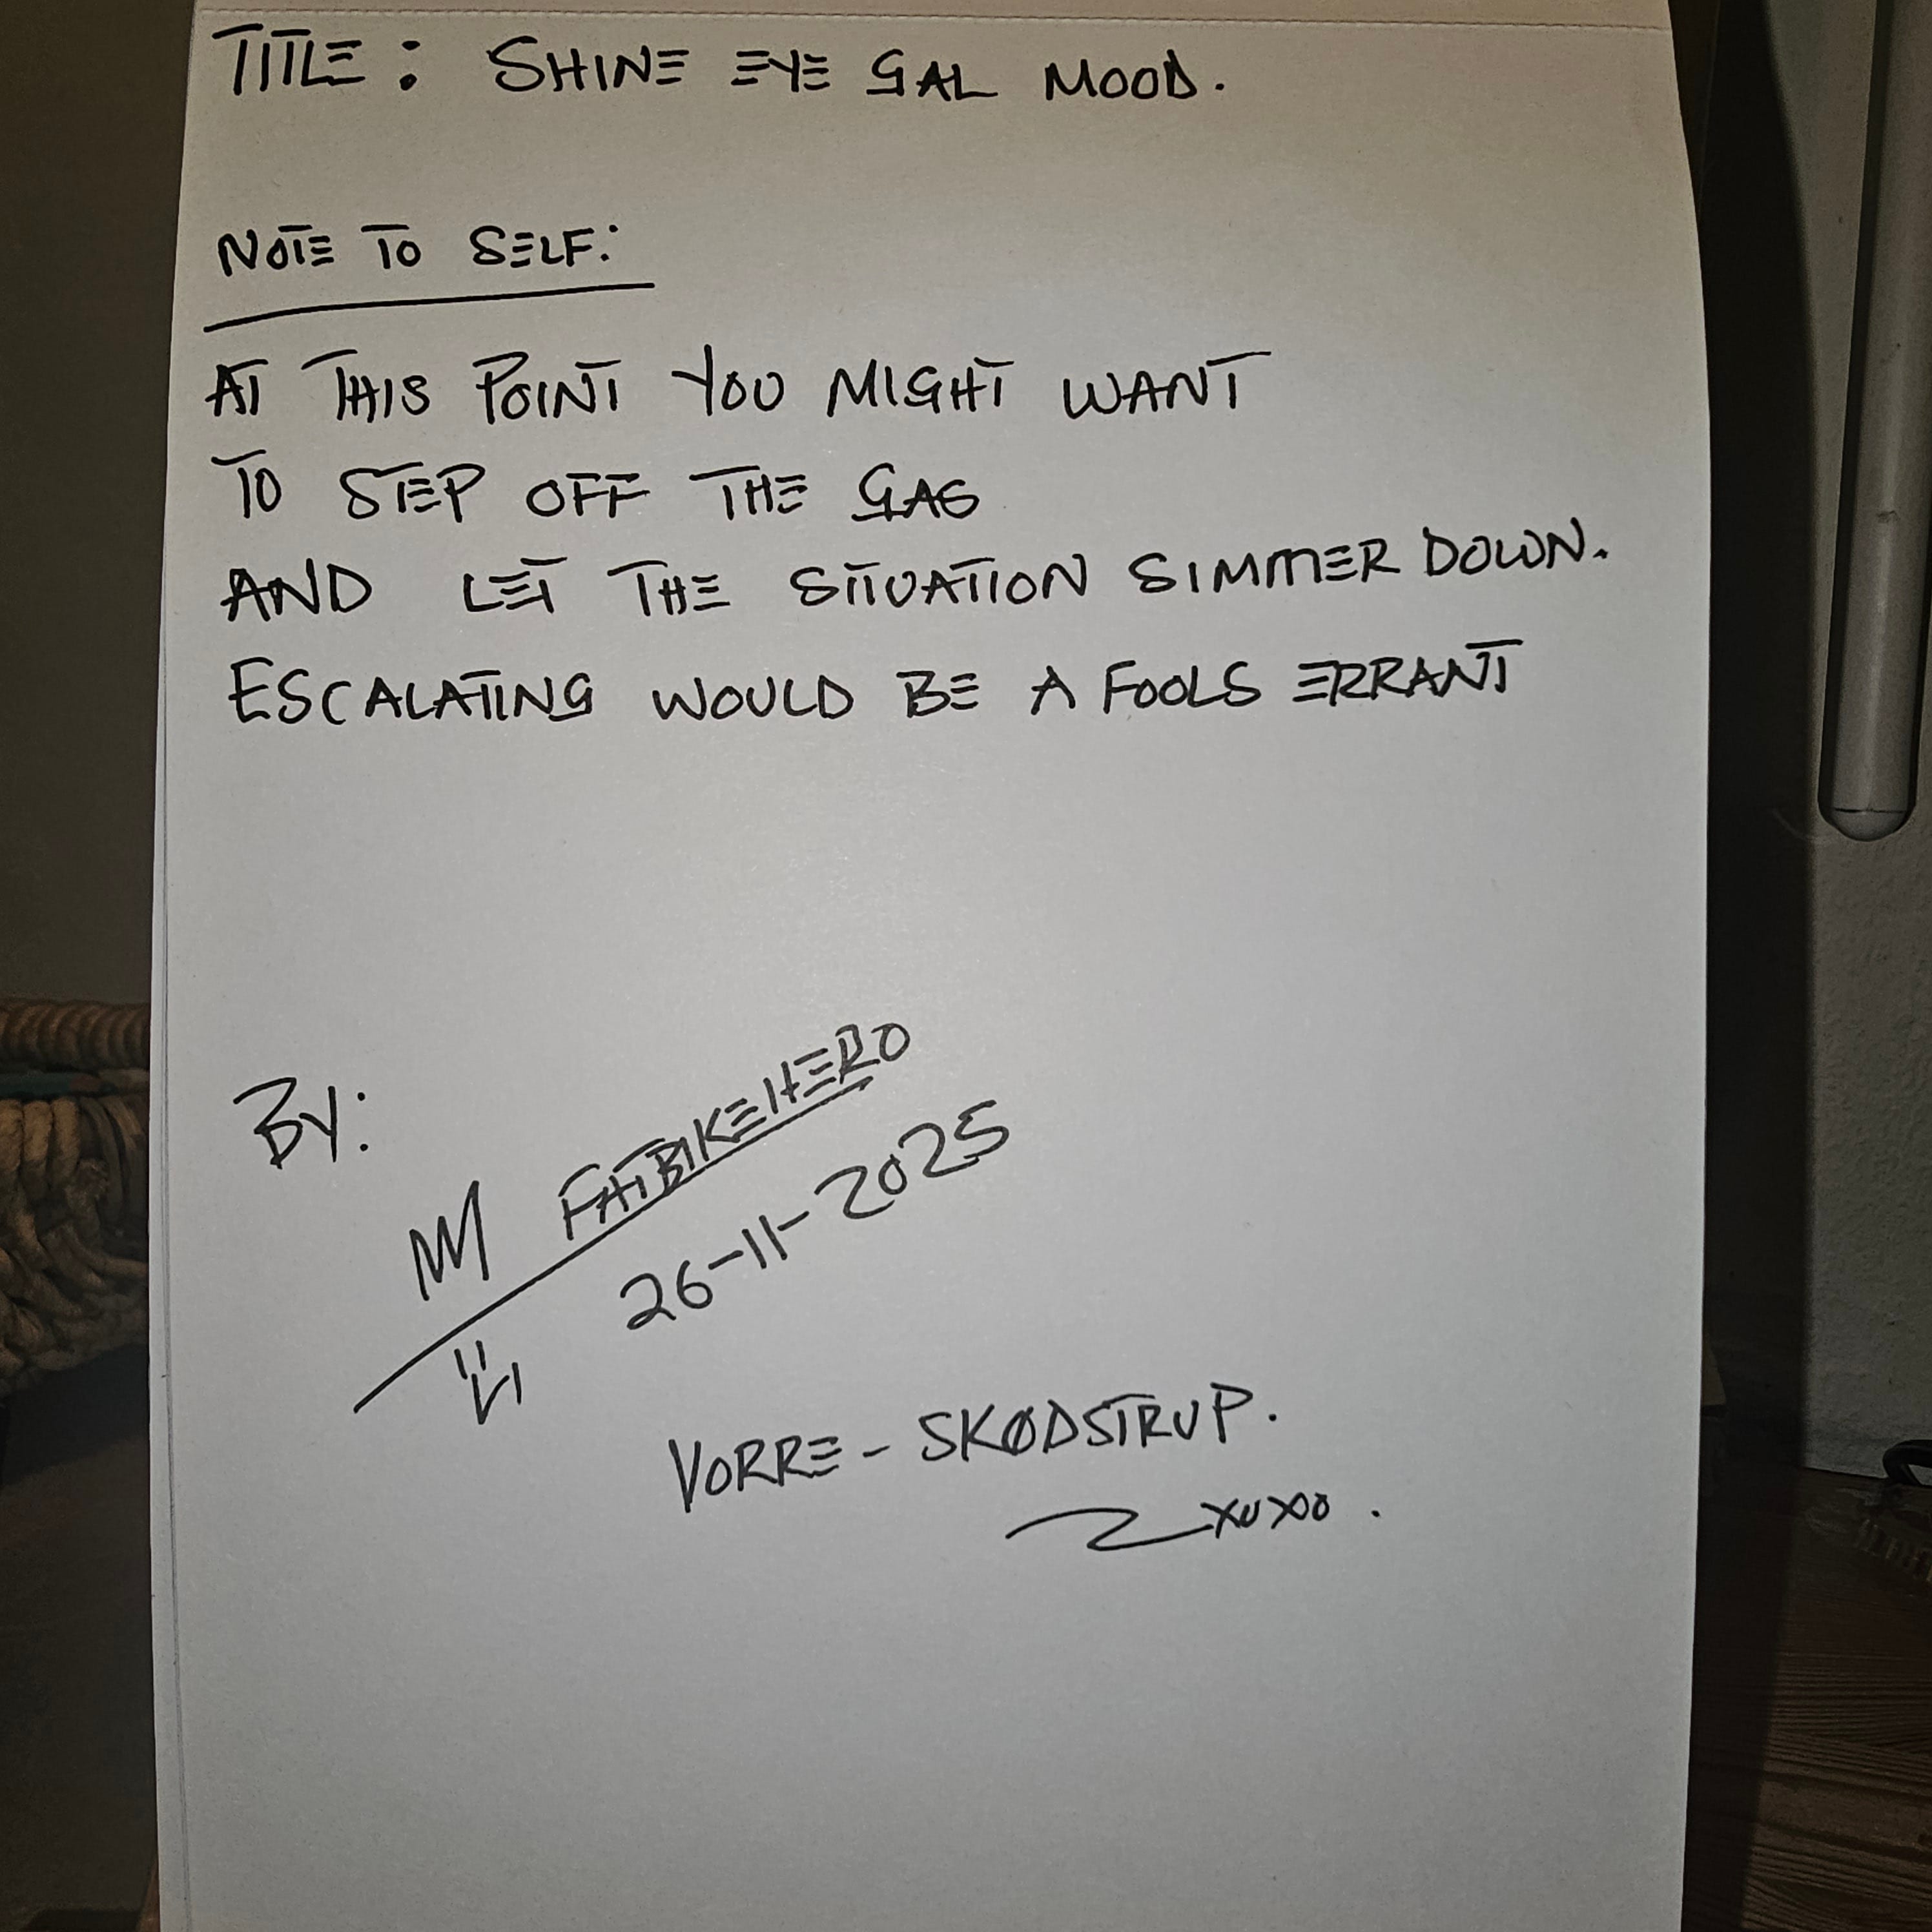 TITLE: SHINE EYE GAL MOOD.
NOTE TO SELF:
AT THIS POINT YOU MIGHT WANT
TO STEP OFF THE GAS
AND LET THE SITUATION SIMMER DOWN.
ESCALATING WOULD BE A FOOLS ERRANT
BY:
M FATBIKEHERO
26-11-2025
VORRE - SKØDSTRUP.
xoxo.